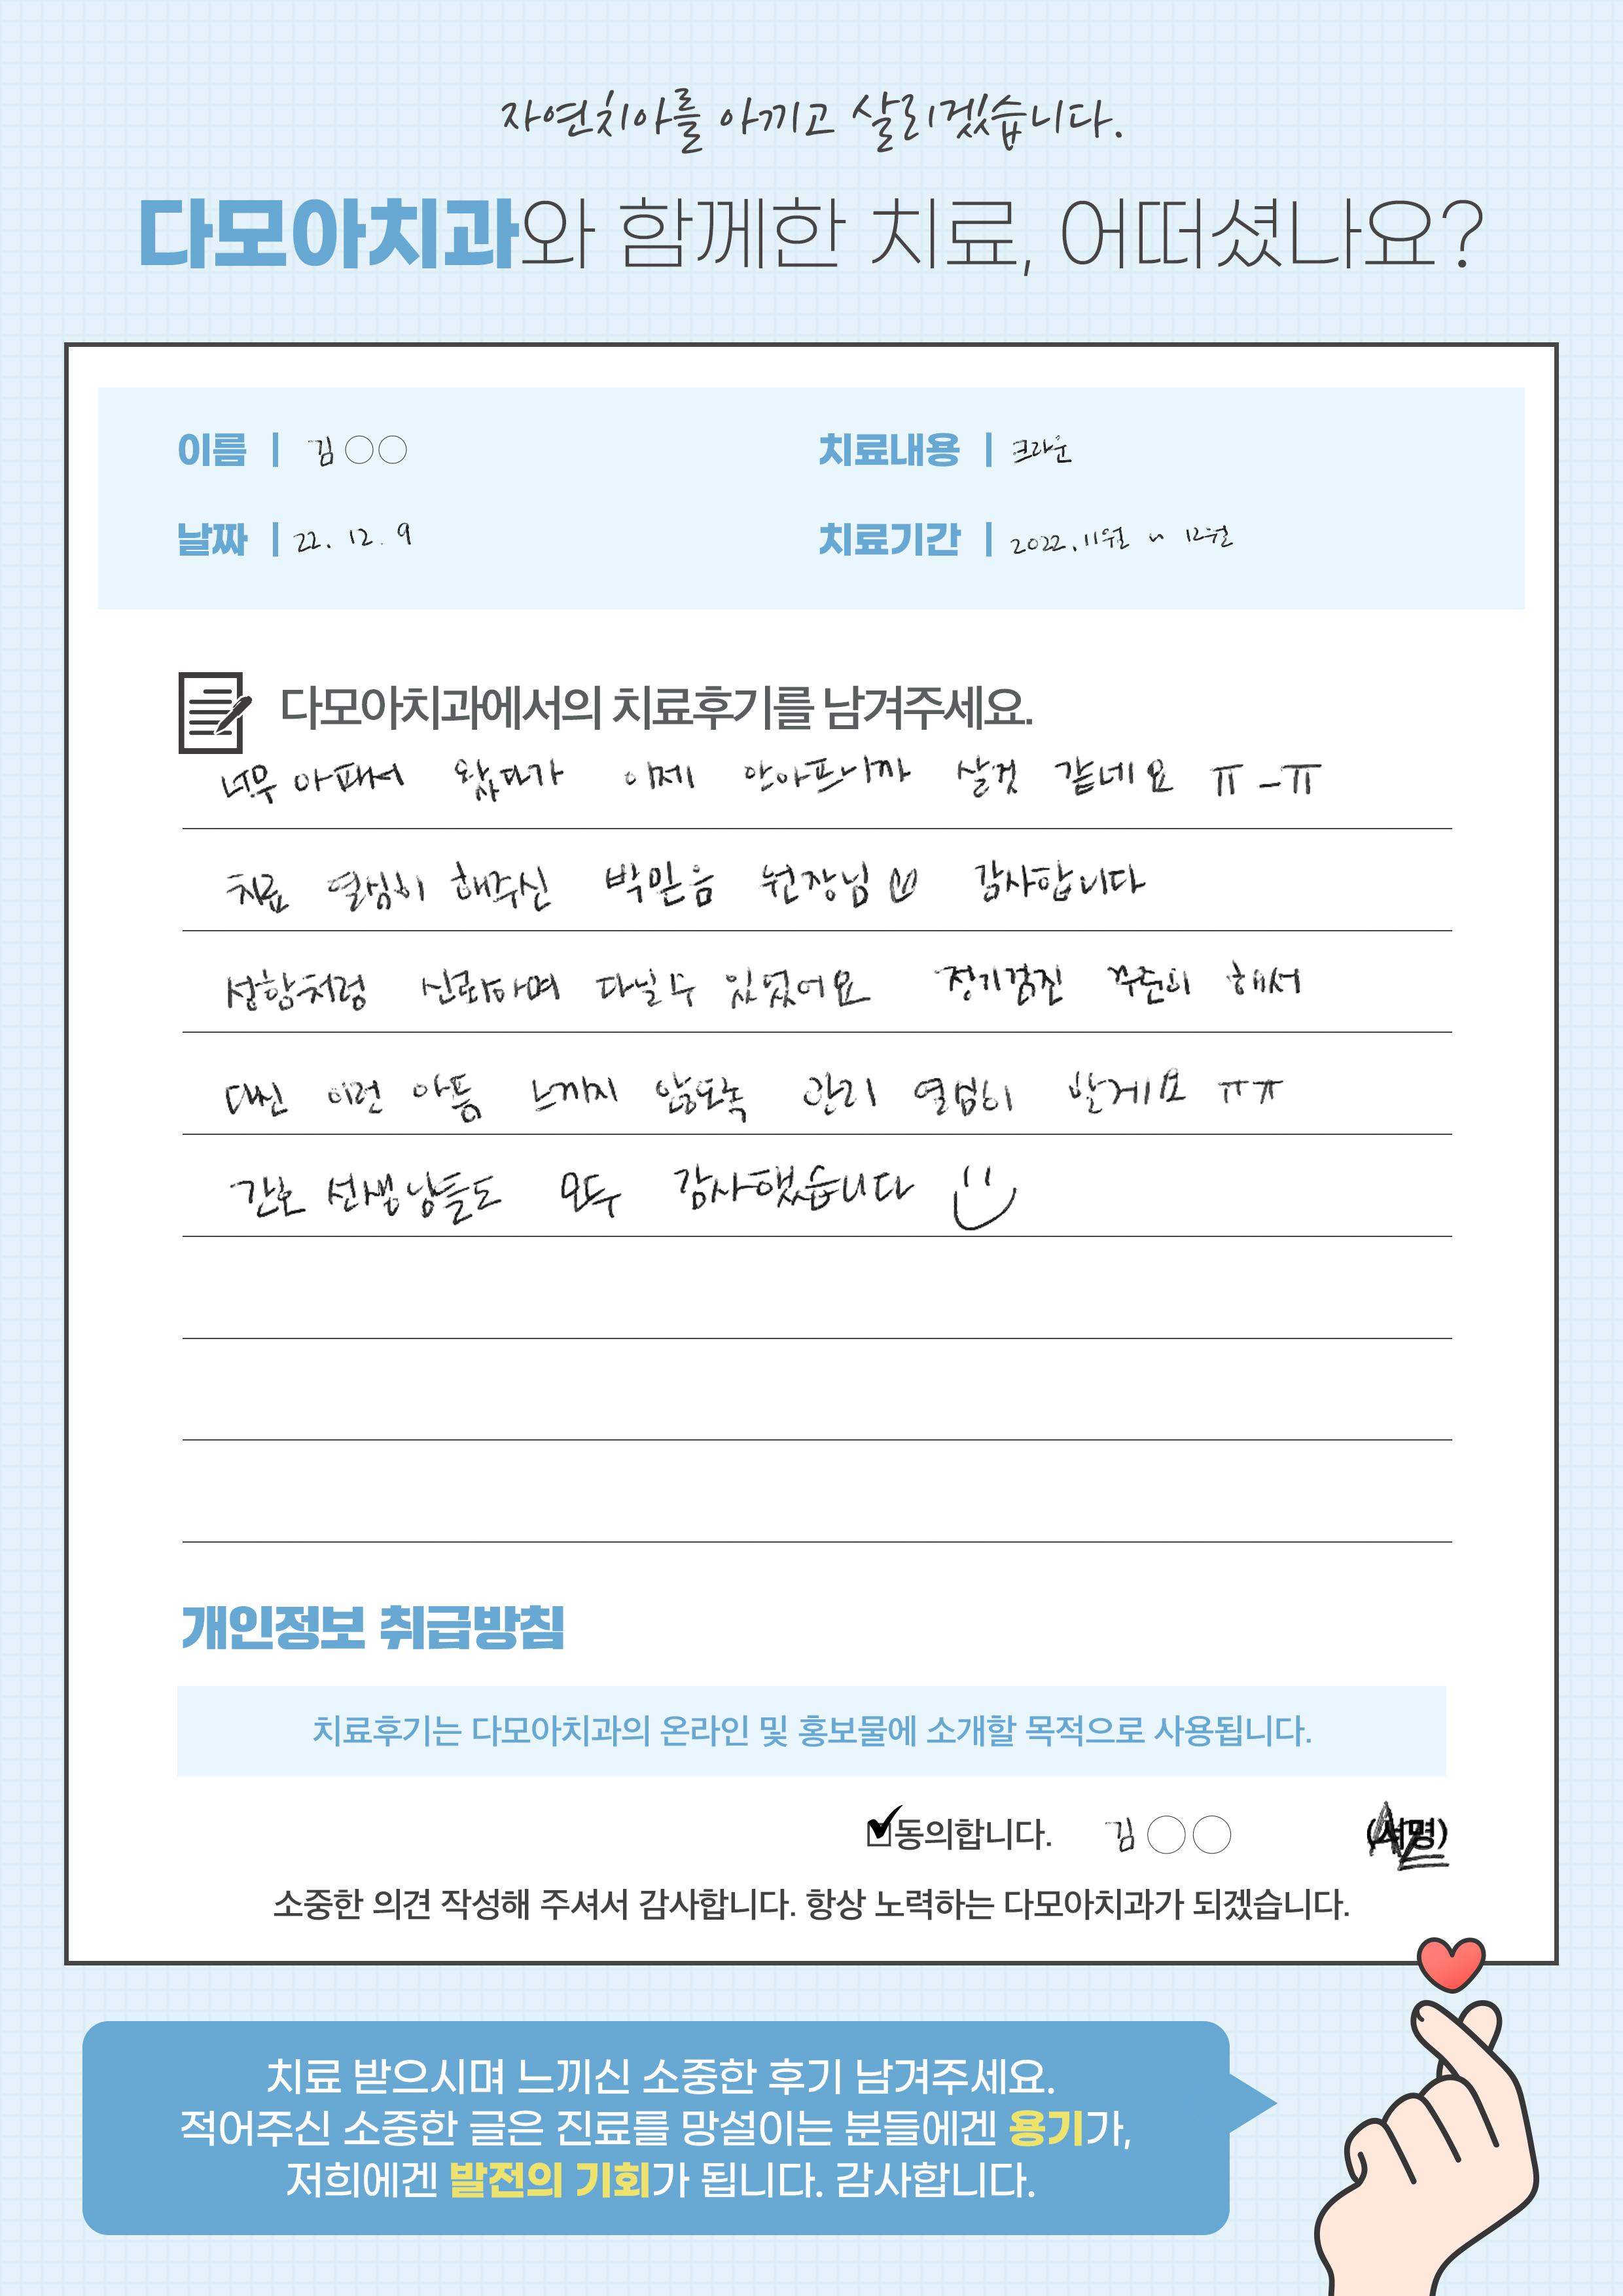 자연치아를 아끼고 살리겠습니다.
다모아치과와 함께한 치료, 어떠셨나요?
이름 | 김○○
치료내용 | 크라운
날짜 | 22. 12. 9
치료기간 | 2022. 11월 ~ 12월
다모아치과에서의 치료후기를 남겨주세요.
너무 아파서 왔다가 이제 안아프니까 살것 같네요 ㅠ_ㅠ
치료 열심히 해주신 박믿음 원장님 감사합니다
성함처럼 신뢰하며 다닐수 있었어요 정기검진 꾸준히 해서
대신 이런 아픔 느끼지 않도록 관리 열심히 할게요 ㅠㅠ
간호 선생님들도 모두 감사했습니다
개인정보 취급방침
치료후기는 다모아치과의 온라인 및 홍보물에 소개할 목적으로 사용됩니다.
동의합니다. 김○○ (서명)
소중한 의견 작성해 주셔서 감사합니다. 항상 노력하는 다모아치과가 되겠습니다.
치료 받으시며 느끼신 소중한 후기 남겨주세요.
적어주신 소중한 글은 진료를 망설이는 분들에겐 용기가,
저희에겐 발전의 기회가 됩니다. 감사합니다.